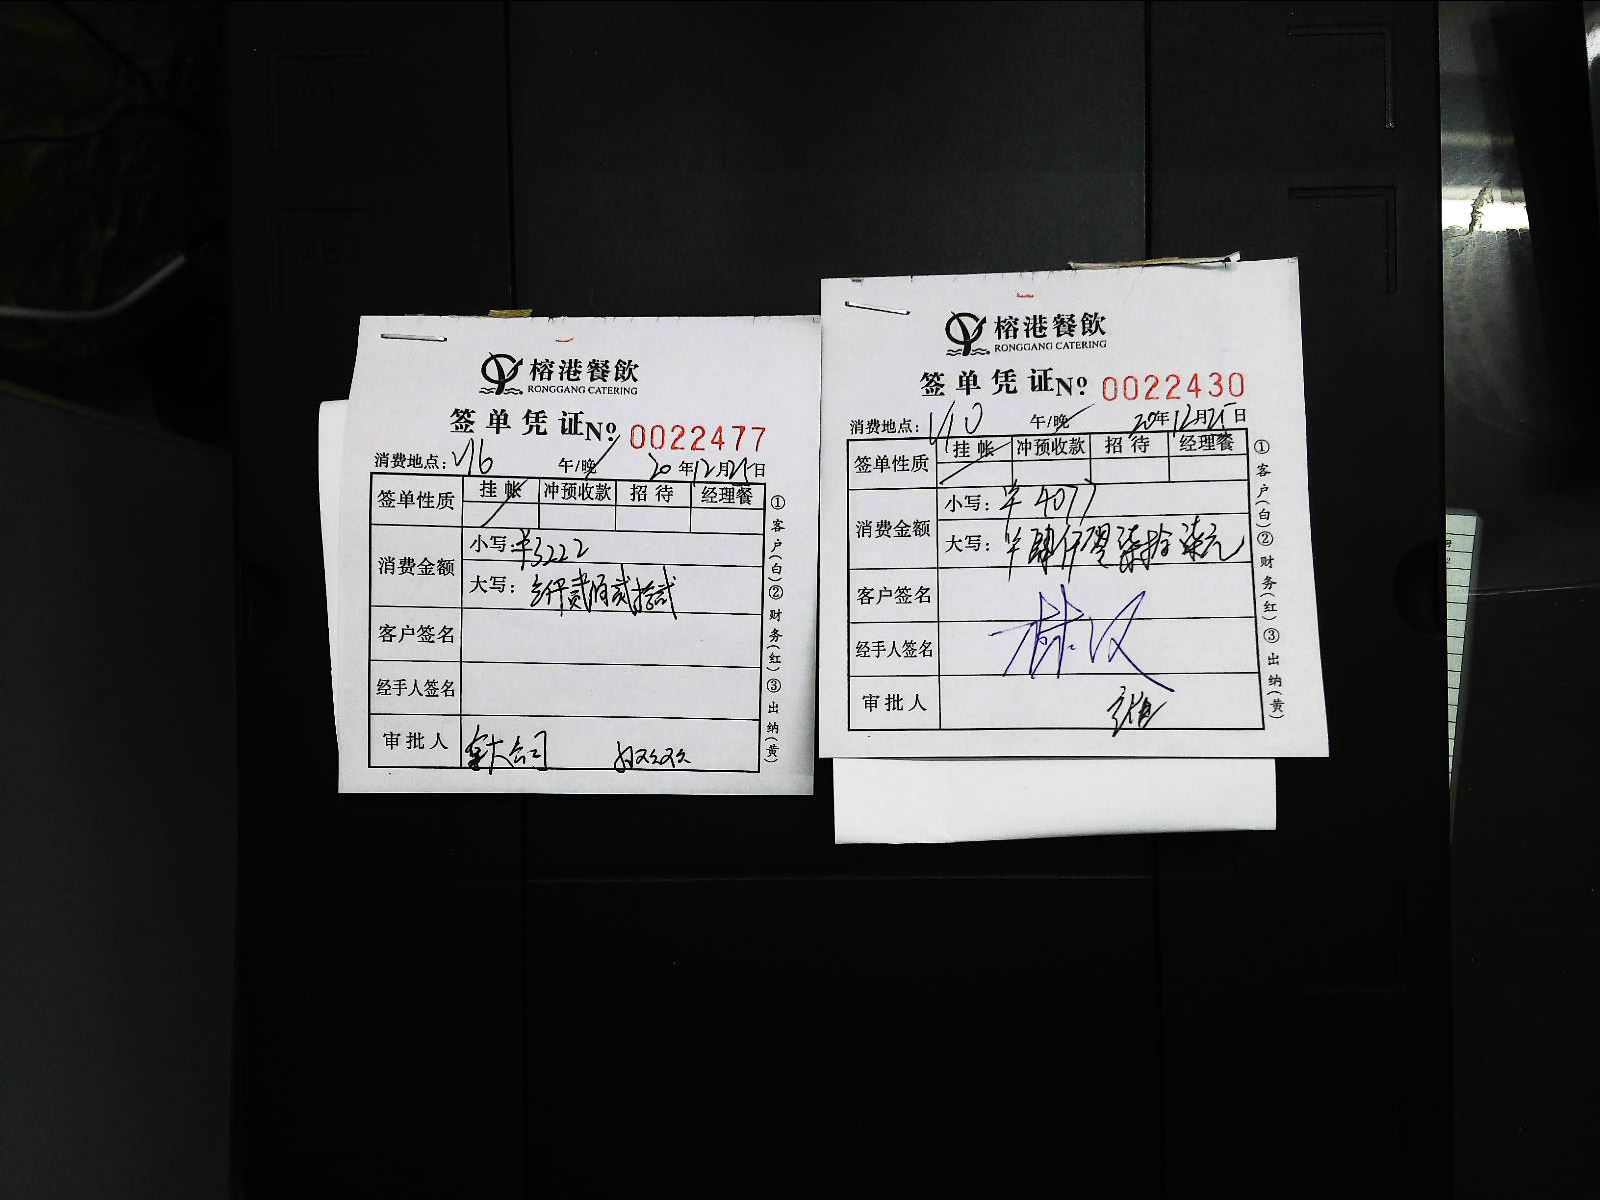 榕港餐飲
RONGGANG CATERING
签单凭证 No. 0022477
消费地点: V16 午/晚 20年12月25日
签单性质 挂帐 冲预收款 招待 经理餐
消费金额 小写: ¥3222
大写: 叁仟贰佰贰拾贰
客户签名
经手人签名
审批人
①客户(白)②财务(红)③出纳(黄)
榕港餐飲
RONGGANG CATERING
签单凭证 No. 0022430
消费地点: V10 午/晚 20年12月25日
签单性质 挂帐 冲预收款 招待 经理餐
消费金额 小写: ¥4077
大写: 肆仟零柒拾柒元
客户签名
经手人签名
审批人
①客户(白)②财务(红)③出纳(黄)
A5